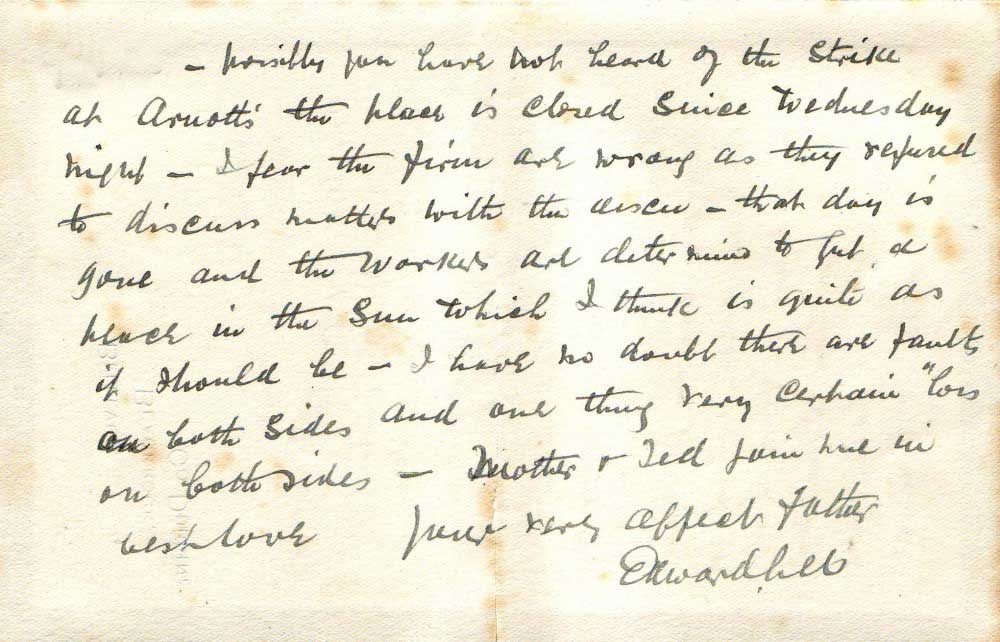 - possibly you have not heard of the strike
at Arnott's the place is closed since Wednesday
night - I fear the firm are wrong as they refused
to discuss matters with the men - that day is
gone and the workers are determind to get a
place in the Sun which I think is quite as
it should be - I have no doubt there are faults
on both sides and one thing very certain "loss
on both sides - Mother & Ted join me in
best love your very affect father
Edward